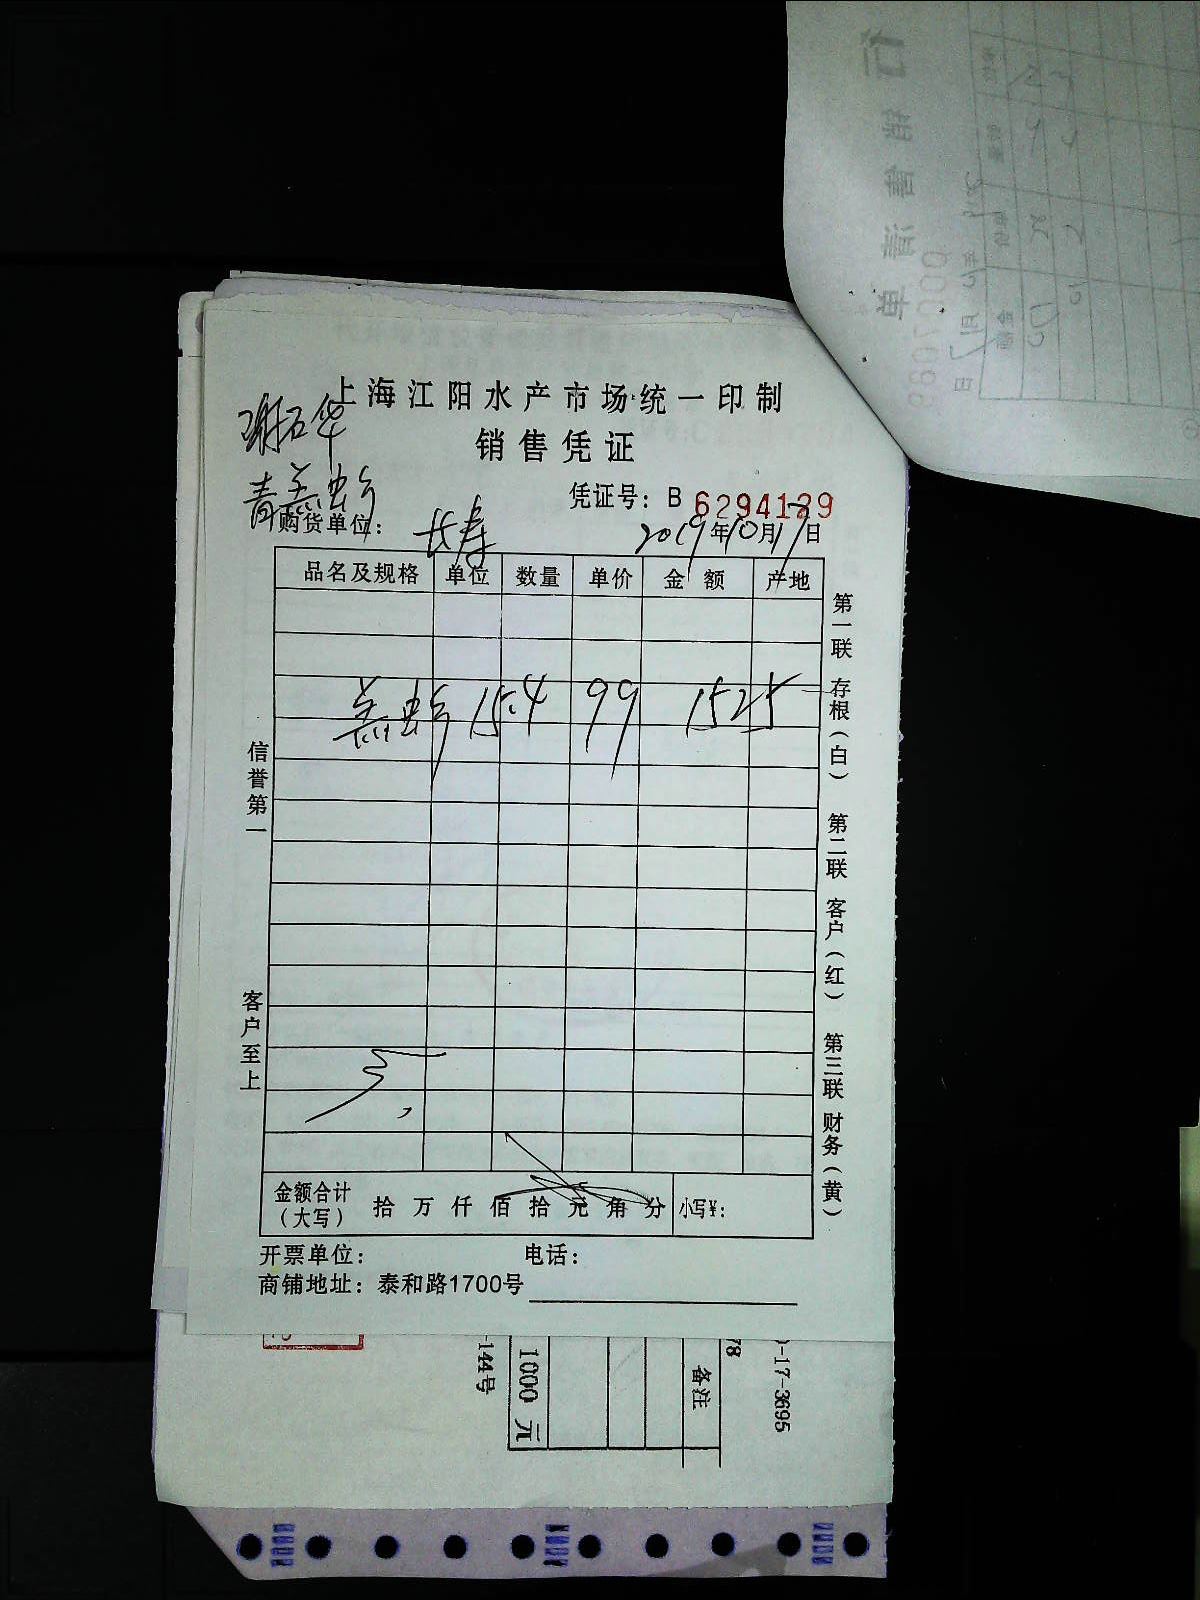 上海江阳水产市场统一印制
销售凭证
凭证号：B 6294129
购货单位：长寿
2019年10月17日
品名及规格 单位 数量 单价 金额 产地
15.4 99 1525
信誉第一
客户至上
第一联 存根（白） 第二联 客户（红） 第三联 财务（黄）
金额合计（大写） 拾 万 仟 佰 拾 元 角 分 小写¥：
开票单位： 电话：
商铺地址：泰和路1700号
-144号
1000 元
备注
78
-17-3695